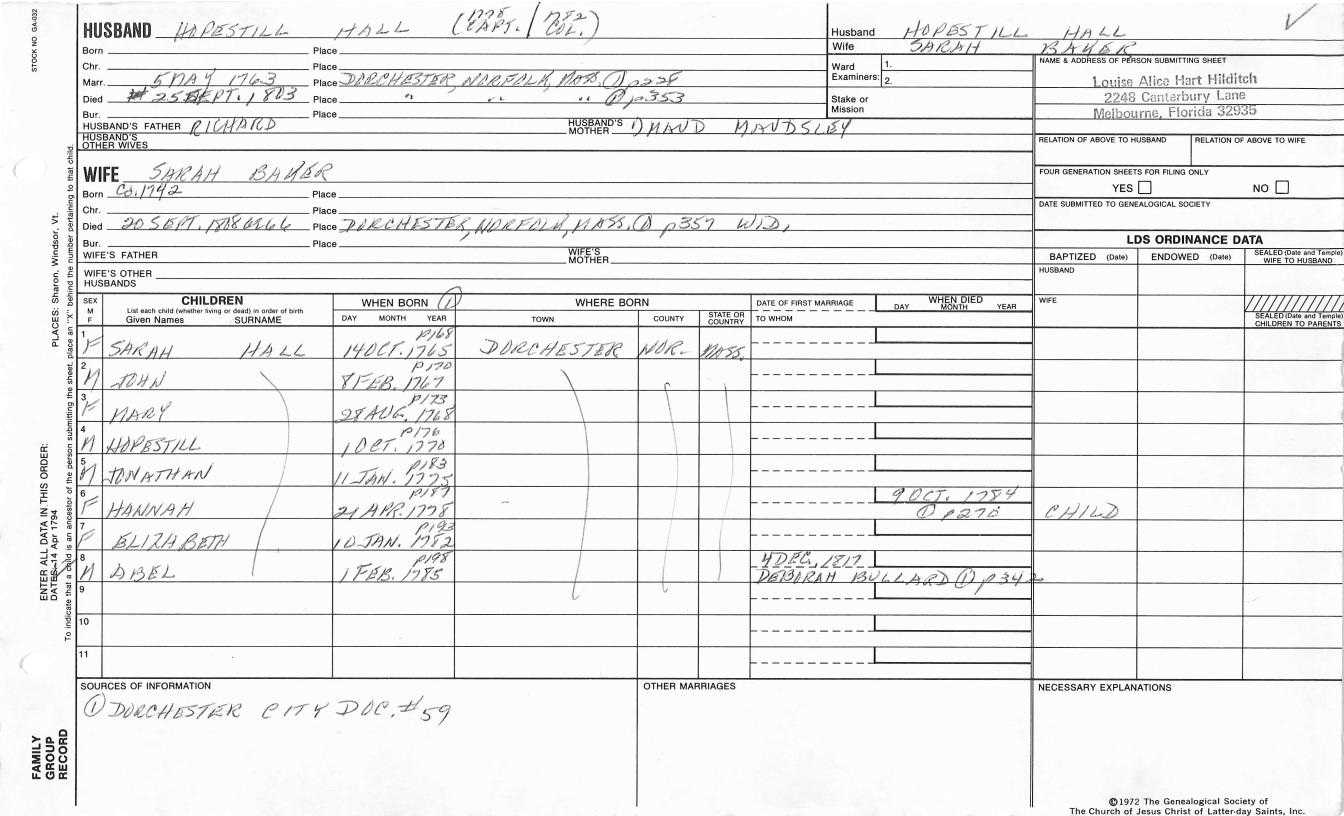 STOCK NO GA-032
HUSBAND HOPESTILL HALL (1778 CAPT. / 1782 COL.)
Born Place
Chr. Place
Marr. 5 MAY 1763 Place DORCHESTER, NORFOLK, MASS. ① p228
Died 25 SEPT. 1803 Place " " " ① p353
Bur. Place
HUSBAND'S FATHER RICHARD HUSBAND'S MOTHER MAUDSLEY
HUSBAND'S OTHER WIVES
Husband HOPESTILL HALL
Wife SARAH BAKER
Ward Examiners: 1.
2.
Stake or Mission
NAME & ADDRESS OF PERSON SUBMITTING SHEET
Louise Alice Hart Hilditch
2248 Canterbury Lane
Melbourne, Florida 32935
RELATION OF ABOVE TO HUSBAND RELATION OF ABOVE TO WIFE
FOUR GENERATION SHEETS FOR FILING ONLY
YES NO
DATE SUBMITTED TO GENEALOGICAL SOCIETY
WIFE SARAH BAKER
Born Ca. 1742 Place
Chr. Place
Died 20 SEPT. 1808 Place DORCHESTER, NORFOLK, MASS. ① p359 WID.
Bur. Place
WIFE'S FATHER WIFE'S MOTHER
WIFE'S OTHER HUSBANDS
LDS ORDINANCE DATA
BAPTIZED (Date) ENDOWED (Date) SEALED (Date and Temple) WIFE TO HUSBAND
HUSBAND
WIFE
SEALED (Date and Temple) CHILDREN TO PARENTS
SEX M F CHILDREN WHEN BORN ① WHERE BORN DATE OF FIRST MARRIAGE WHEN DIED
List each child (whether living or dead) in order of birth
Given Names SURNAME DAY MONTH YEAR TOWN COUNTY STATE OR COUNTRY TO WHOM DAY MONTH YEAR
p168
1 F SARAH HALL 14 OCT. 1765 DORCHESTER NOR. MASS.
p170
2 M JOHN 8 FEB. 1767
p173
3 F MARY 28 AUG. 1768
p176
4 M HOPESTILL 1 OCT. 1770
p183
5 M JONATHAN 11 JAN. 1775
p187 9 OCT. 1784
6 F HANNAH 21 APR. 1778 ① p270 CHILD
p193
7 F ELIZABETH 10 JAN. 1782
p198 4 DEC. 1817
8 M ABEL 1 FEB. 1785 DEBORAH BULLARD ① p342
9
10
11
SOURCES OF INFORMATION OTHER MARRIAGES NECESSARY EXPLANATIONS
① DORCHESTER CITY DOC. #59
ENTER ALL DATA IN THIS ORDER:
DATES: 14 Apr 1794
PLACES: Sharon, Windsor, Vt.
To indicate that a child is an ancestor of the person submitting the sheet, place an "X" behind the number pertaining to that child.
FAMILY
GROUP
RECORD
©1972 The Genealogical Society of
The Church of Jesus Christ of Latter-day Saints, Inc.